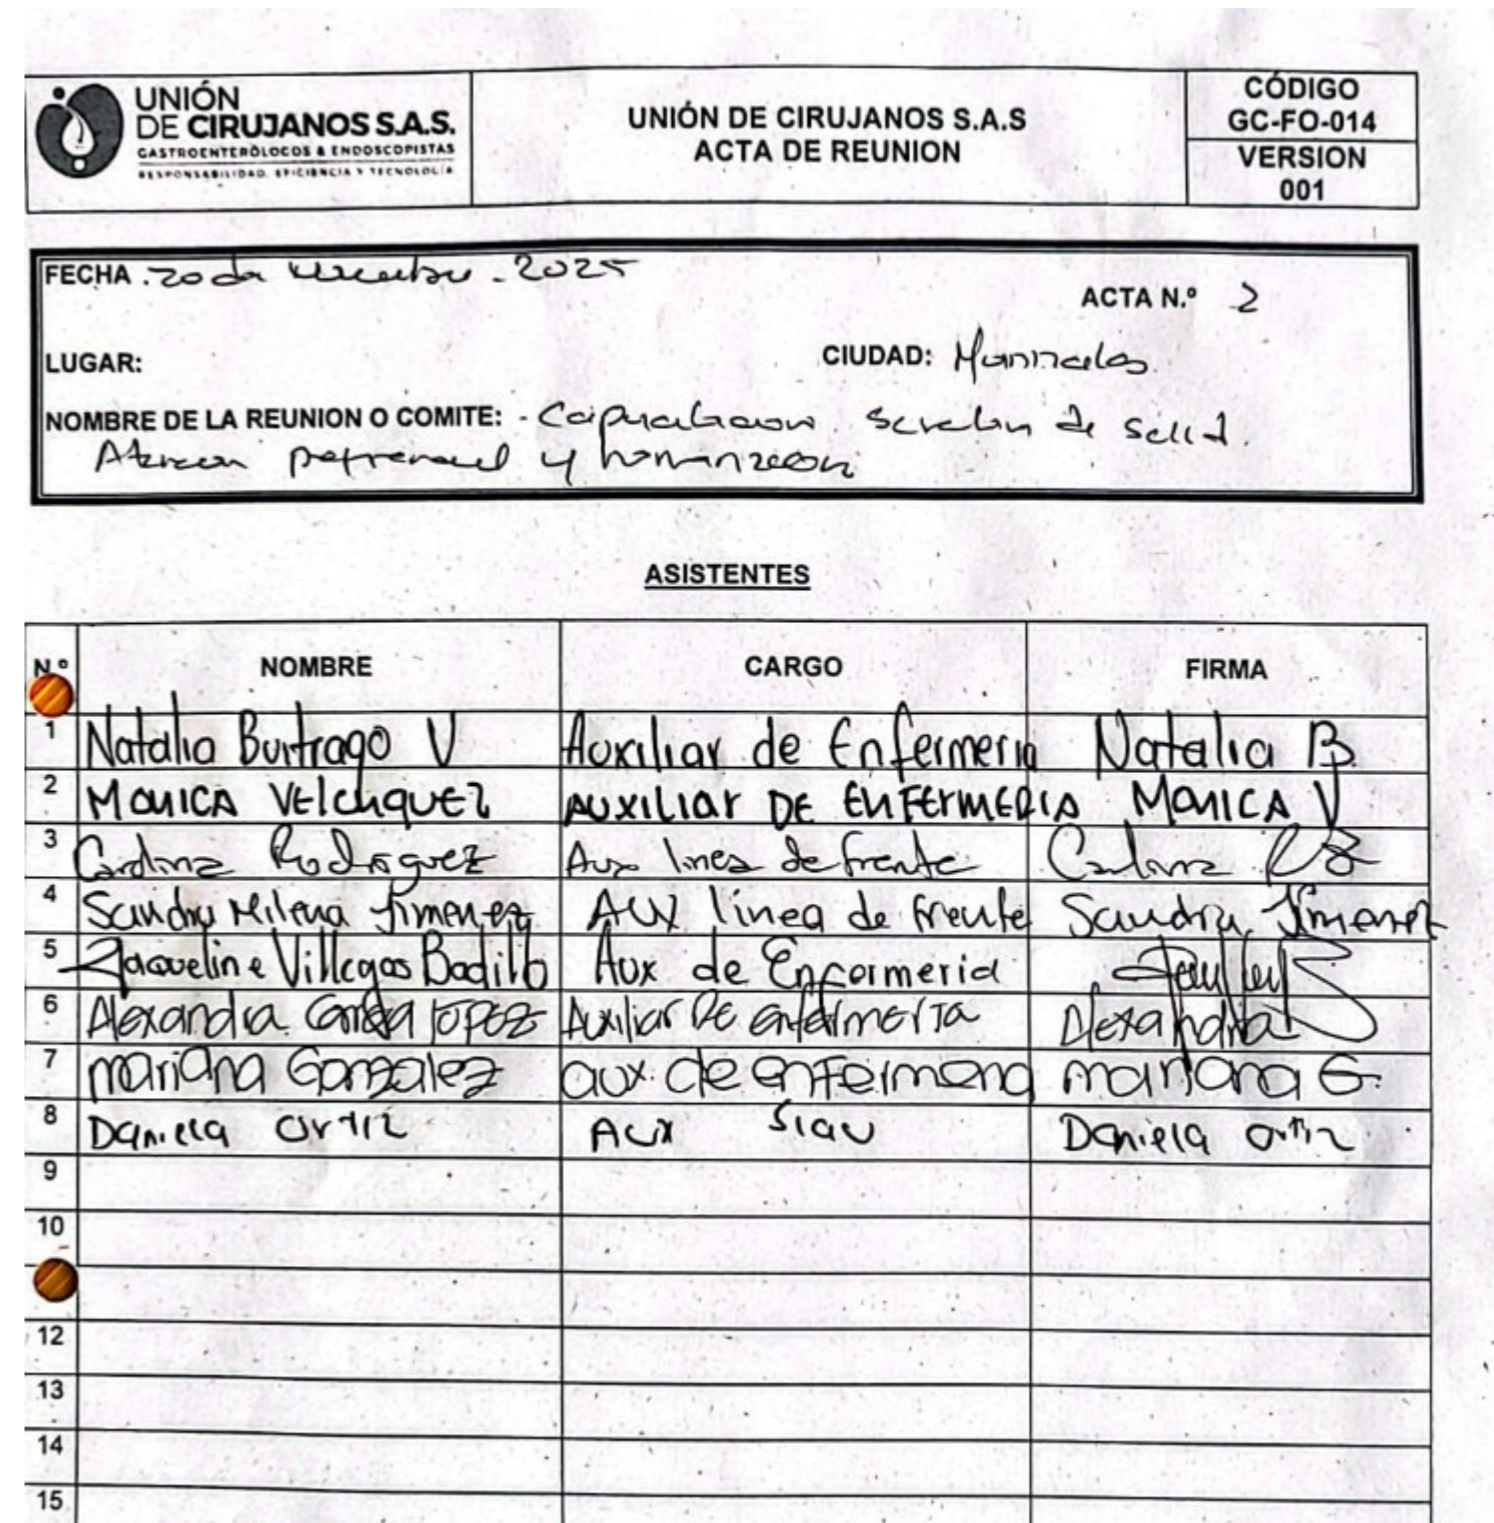 UNIÓN
DE CIRUJANOS S.A.S.
GASTROENTERÓLOGOS & ENDOSCOPISTAS
RESPONSABILIDAD, EFICIENCIA Y TECNOLOGÍA
UNIÓN DE CIRUJANOS S.A.S
ACTA DE REUNION
CÓDIGO
GC-FO-014
VERSION
001
FECHA . 20 de 2025
ACTA N.º 2
LUGAR:
CIUDAD: Manizales
NOMBRE DE LA REUNION O COMITE: de
y
ASISTENTES
N.º NOMBRE CARGO FIRMA
1 Natalia Buitrago V Auxiliar de Enfermeria Natalia B
2 MONICA VELASQUEZ AUXILIAR DE ENFERMERIA MONICA V
3 Carolina Rodriguez Aux linea de frente Carolina
4 Sandra Milena Jimenez AUX linea de frente Sandra Jimenez
5 Jaqueline Villegas Badillo Aux de Enfermeria
6 Alexandra LOPEZ Auxiliar DE enfermeria Alexandra
7 mariana Gonzalez aux. de enfermeria mariana G.
8 Daniela Ortiz Aux Siau Daniela Ortiz
9
10
12
13
14
15